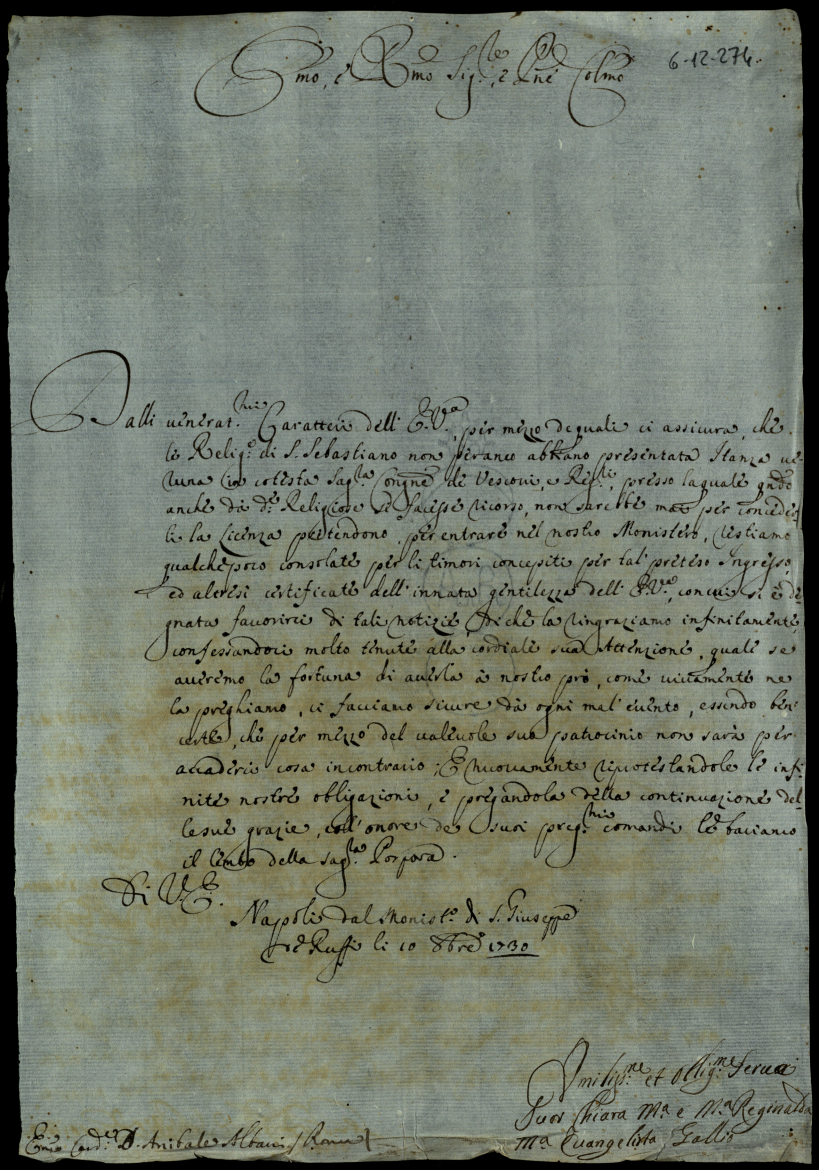 6-12-274.
Emo, e Rmo Sig.re, e Pne Colmo
Dalli venerat.mi Caratteri dell' E.V.ra, per mezzo de quali ci assicura, che
le Relig.e di S. Sebastiano non peranco abbiano presentata Istanza ve-
runa in cotesta Sag.ta Congne de Vescovi, e Reg.li, presso la quale qndo
anche da d.e Religiose si facesse ricorso, non sarebbe mai per conceder-
li la licenza pretendono per entrare nel nostro Monistero, restiamo
qualche poco consolate per li timori concepiti per tal preteso Ingresso,
ed altresi certificate dell' innata gentilezza dell' E.V.ra, con cui si è de-
gnata favorirci di tali notizie, di che la ringraziamo infinitamente,
confessandoci molto tenute alla cordiale sua Attenzione, quale se
averemo la fortuna di averla à nostro prò, come vivamente ne
la preghiamo, ci facciamo sicure dà ogni mal' evento, essendo ben
certe, che per mezzo del valevole suo patrocinio non sarà per
accaderci cosa incontrario; E nuovamente riprotestandole le infi-
nite nostre obligazioni, e pregandola della continuazione del-
le sue grazie, coll' onore de suoi preg.mi comandi le baciamo
il lembo della sag.ta Porpora.
Di V.E.
Napoli dal Monist.o di S. Giuseppe
de Ruffi li 10 8bre 1730
Umiliss.me et Oblig.me Serve
Suor Chiara M.a e M.a Reginalda
M.a Evangelista Galli
Emo Card.e D. Anibale Albani / Roma /